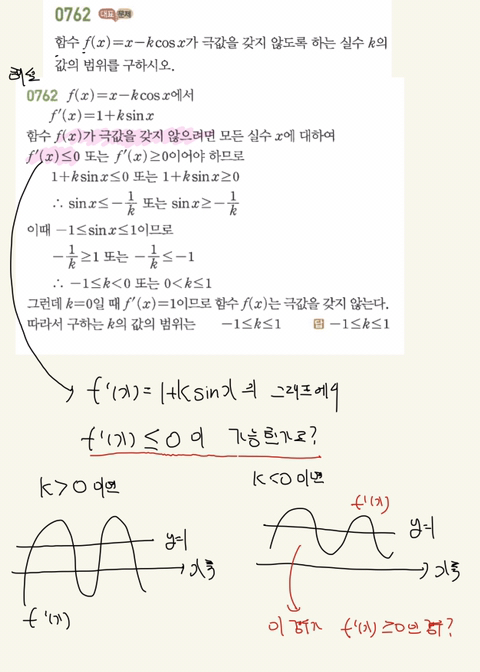 0762 대표 문제
함수 f(x)=x-k cos x가 극값을 갖지 않도록 하는 실수 k의
값의 범위를 구하시오.
해설
0762 f(x)=x-k cos x에서
f'(x)=1+k sin x
함수 f(x)가 극값을 갖지 않으려면 모든 실수 x에 대하여
f'(x)≤0 또는 f'(x)≥0이어야 하므로
1+k sin x≤0 또는 1+k sin x≥0
∴ sin x≤-1/k 또는 sin x≥-1/k
이때 -1≤sin x≤1이므로
-1/k≥1 또는 -1/k≤-1
∴ -1≤k<0 또는 0<k≤1
그런데 k=0일 때 f'(x)=1이므로 함수 f(x)는 극값을 갖지 않는다.
따라서 구하는 k의 값의 범위는 -1≤k≤1 답 -1≤k≤1
f'(x)=1+k sin x의 그래프에서
f'(x)≤0이 가능한가요?
k>0이면
k<0이면
f'(x)
y=1
y=1
x축
x축
f'(x)
이 경우가 f'(x)≥0인 경우?